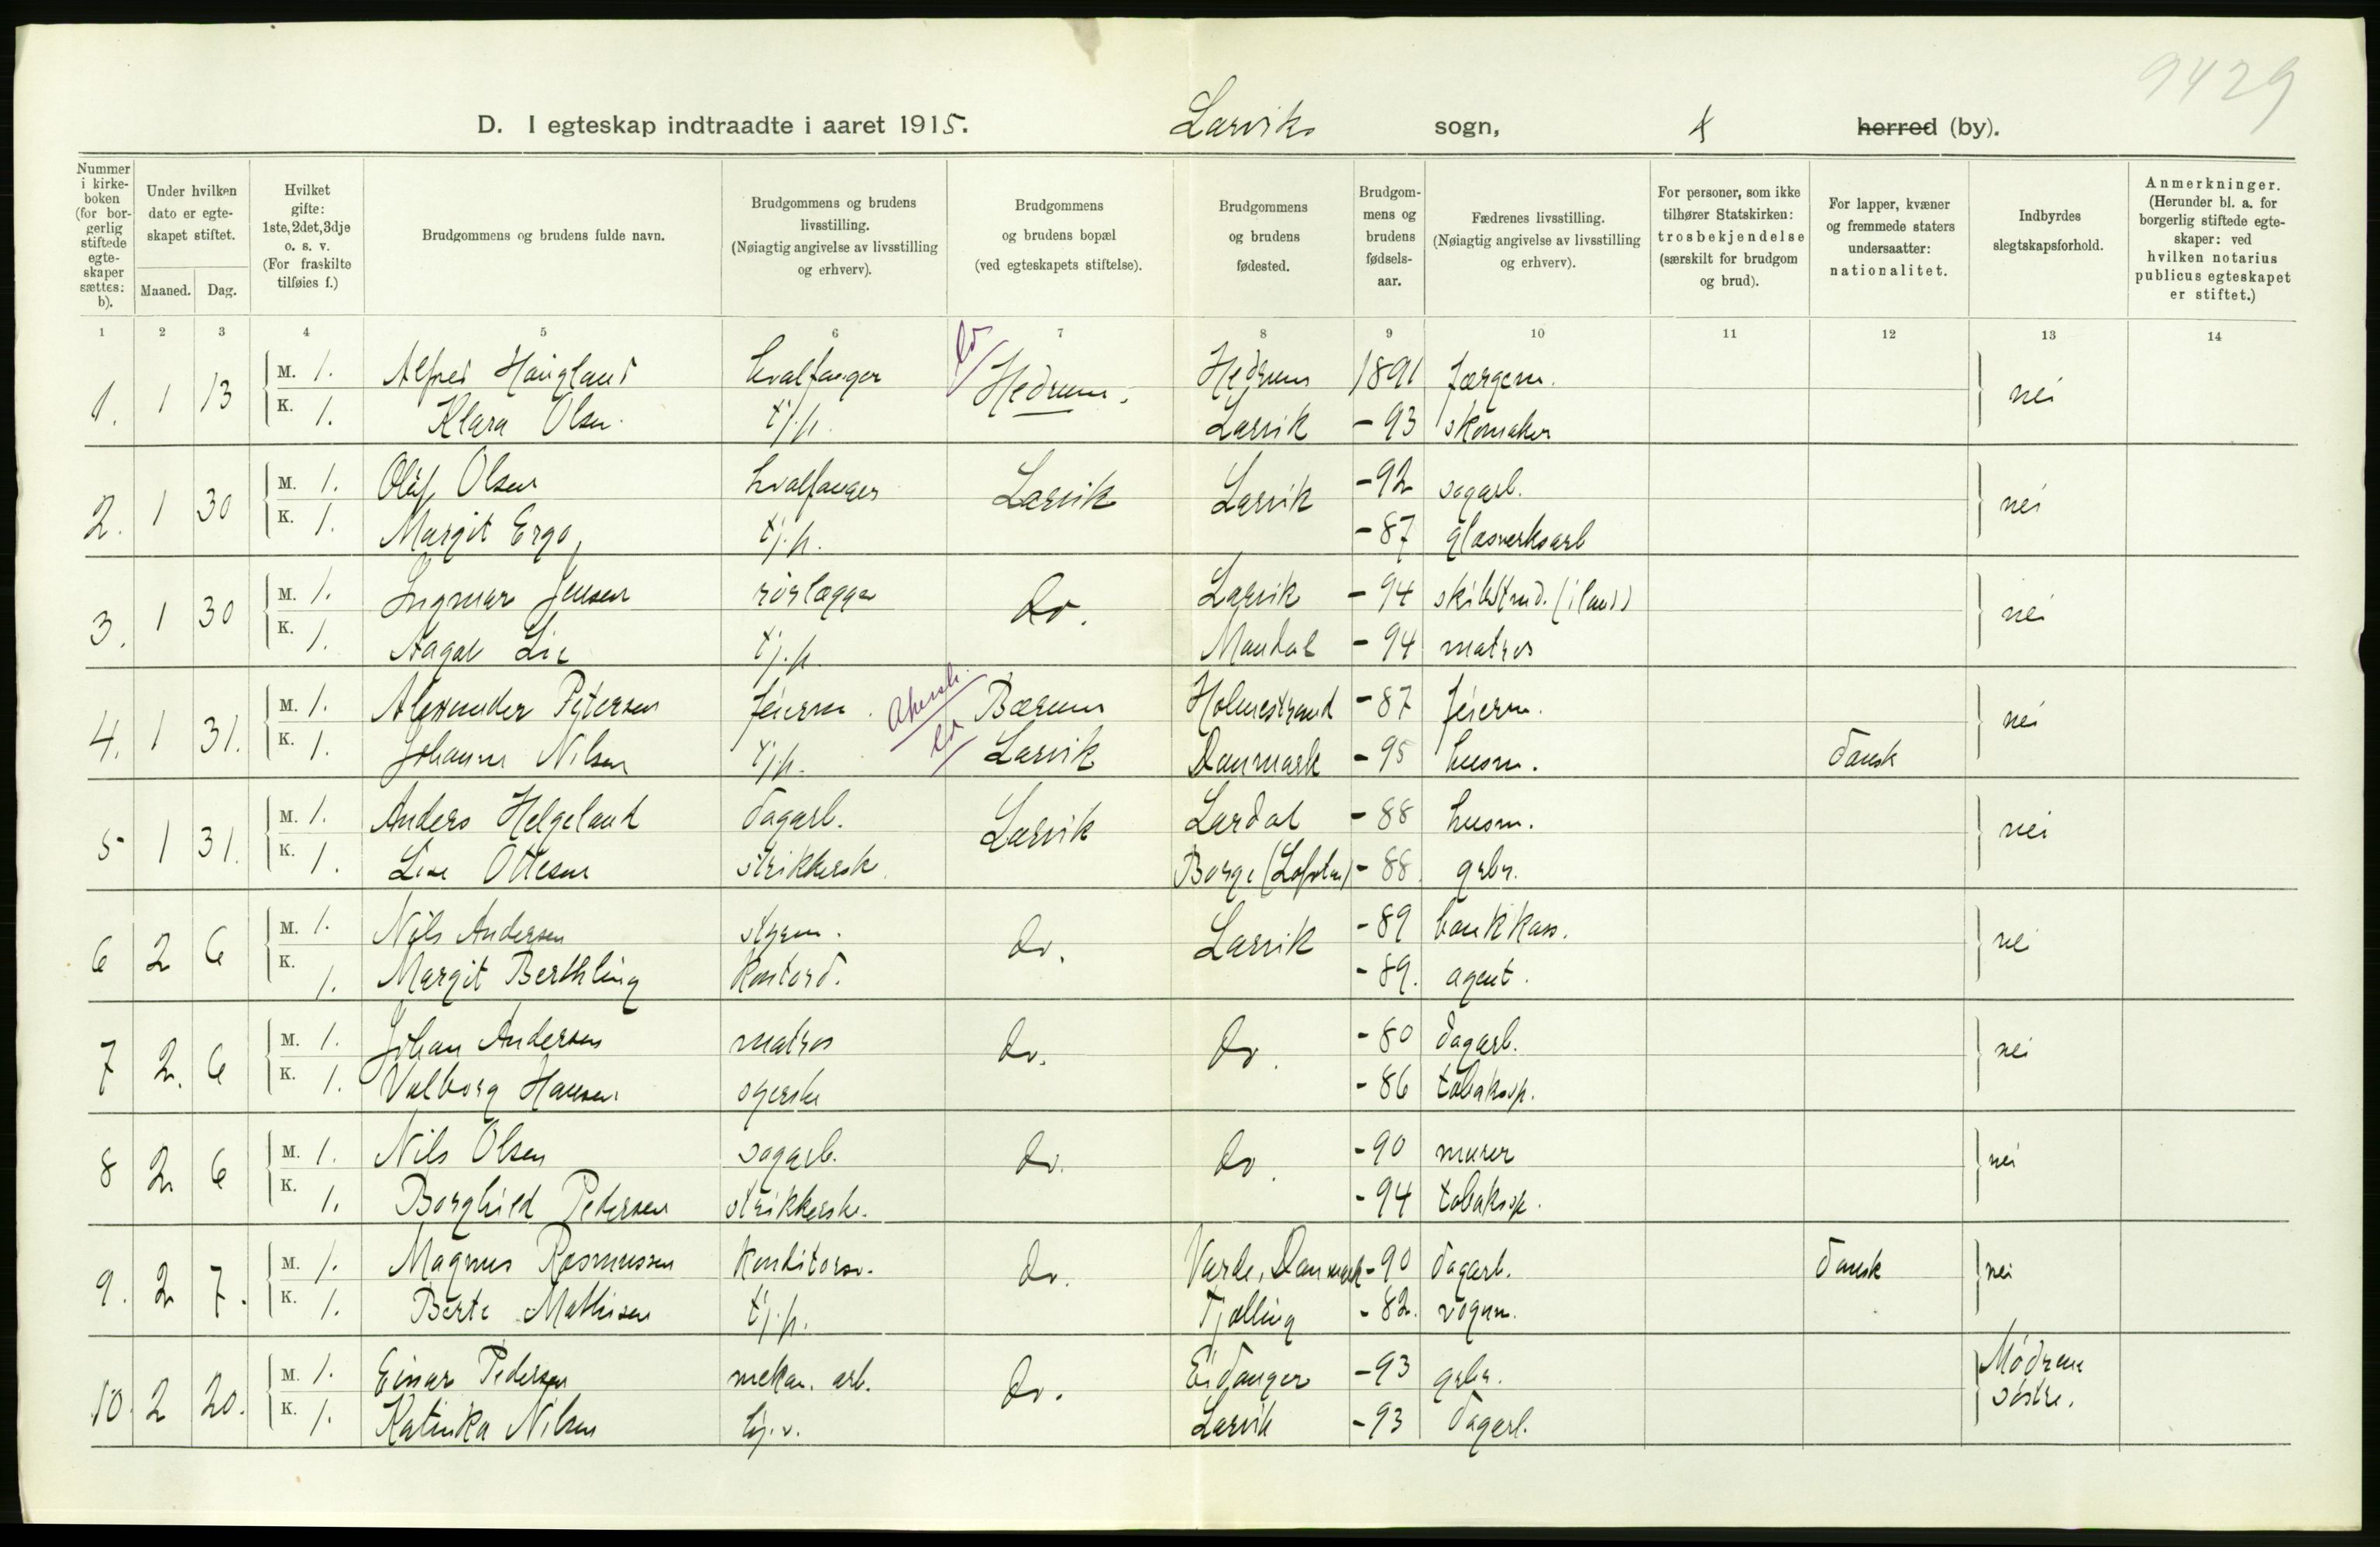 9429
D. I egteskap indtraadte i aaret 1915. Larviks sogn, herred (by).
Nummer i kirkeboken (for borgerlig stiftede egteskaper sættes: b).
Under hvilken dato er egteskapet stiftet.
Maaned. Dag.
Hvilket gifte: 1ste, 2det, 3dje o. s. v. (For fraskilte tilføies f.)
Brudgommens og brudens fulde navn.
Brudgommens og brudens livsstilling. (Nøiagtig angivelse av livsstilling og erhverv).
Brudgommens og brudens bopæl (ved egteskapets stiftelse).
Brudgommens og brudens fødested.
Brudgommens og brudens fødselsaar.
Fædrenes livsstilling. (Nøiagtig angivelse av livsstilling og erhverv).
For personer, som ikke tilhører Statskirken: trosbekjendelse (særskilt for brudgom og brud).
For lapper, kvæner og fremmede staters undersaatter: nationalitet.
Indbyrdes slegtskapsforhold.
Anmerkninger. (Herunder bl. a. for borgerlig stiftede egteskaper: ved hvilken notarius publicus egteskapet er stiftet.)
1 2 3 4 5 6 7 8 9 10 11 12 13 14
1. 1 13 M. 1. Alfred Haugland hvalfanger Hedrum. Hedrum 1891 færgem. nei
K. 1. Klara Olsen tj.p. Larvik -93 skomaker
2. 1 30 M. 1. Olaf Olsen hvalfanger Larvik Larvik -92 sagarb. nei
K. 1. Margit Ergo, tj.p. -87 glasverksarb
3. 1 30 M. 1. Ingmar Jensen rørlægger do. Larvik -94 skibstmd. (iland) nei
K. 1. Aagot Lie tj.p. Mandal -94 matros
4. 1 31. M. 1. Alexander Petersen feierm. Akersh. Bærum Holmestrand -87 feierm. nei
K. 1. Johanne Nilsen tj.p. Larvik Danmark -95 husm. dansk
5 1 31. M. 1. Anders Helgeland dagarb. Larvik Lardal -88 husm. nei
K. 1. Lise Ottesen strikkersk. Borge (Lofoten) -88. grbr.
6 2 6 M. 1. Nils Andersen styrm. do. Larvik -89 bankkass. nei
K. 1. Margit Berthling kontord. -89. agent.
7 2. 6 M. 1. Johan Andersen matros do. do. -80 dagarb. nei
K. 1. Valborg Hansen syerske -86 tobaksp.
8 2 6 M. 1. Nils Olsen sagarb. do. do. -90 murer nei
K. 1. Borghild Pedersen strikkerske. -94 tobaksp.
9. 2 7. M. 1. Magnus Rasmussen konditorsv. do. Varde, Danmark -90 dagarb. dansk nei
K. 1. Berte Mathisen tj.p. Tjølling -82. vognm.
10. 2 20. M. 1. Einar Pedersen mekan. arb. do. Eidanger -93 grbr. Mødrene søstre.
K. 1. Katinka Nilsen Larvik -93 dagarb.